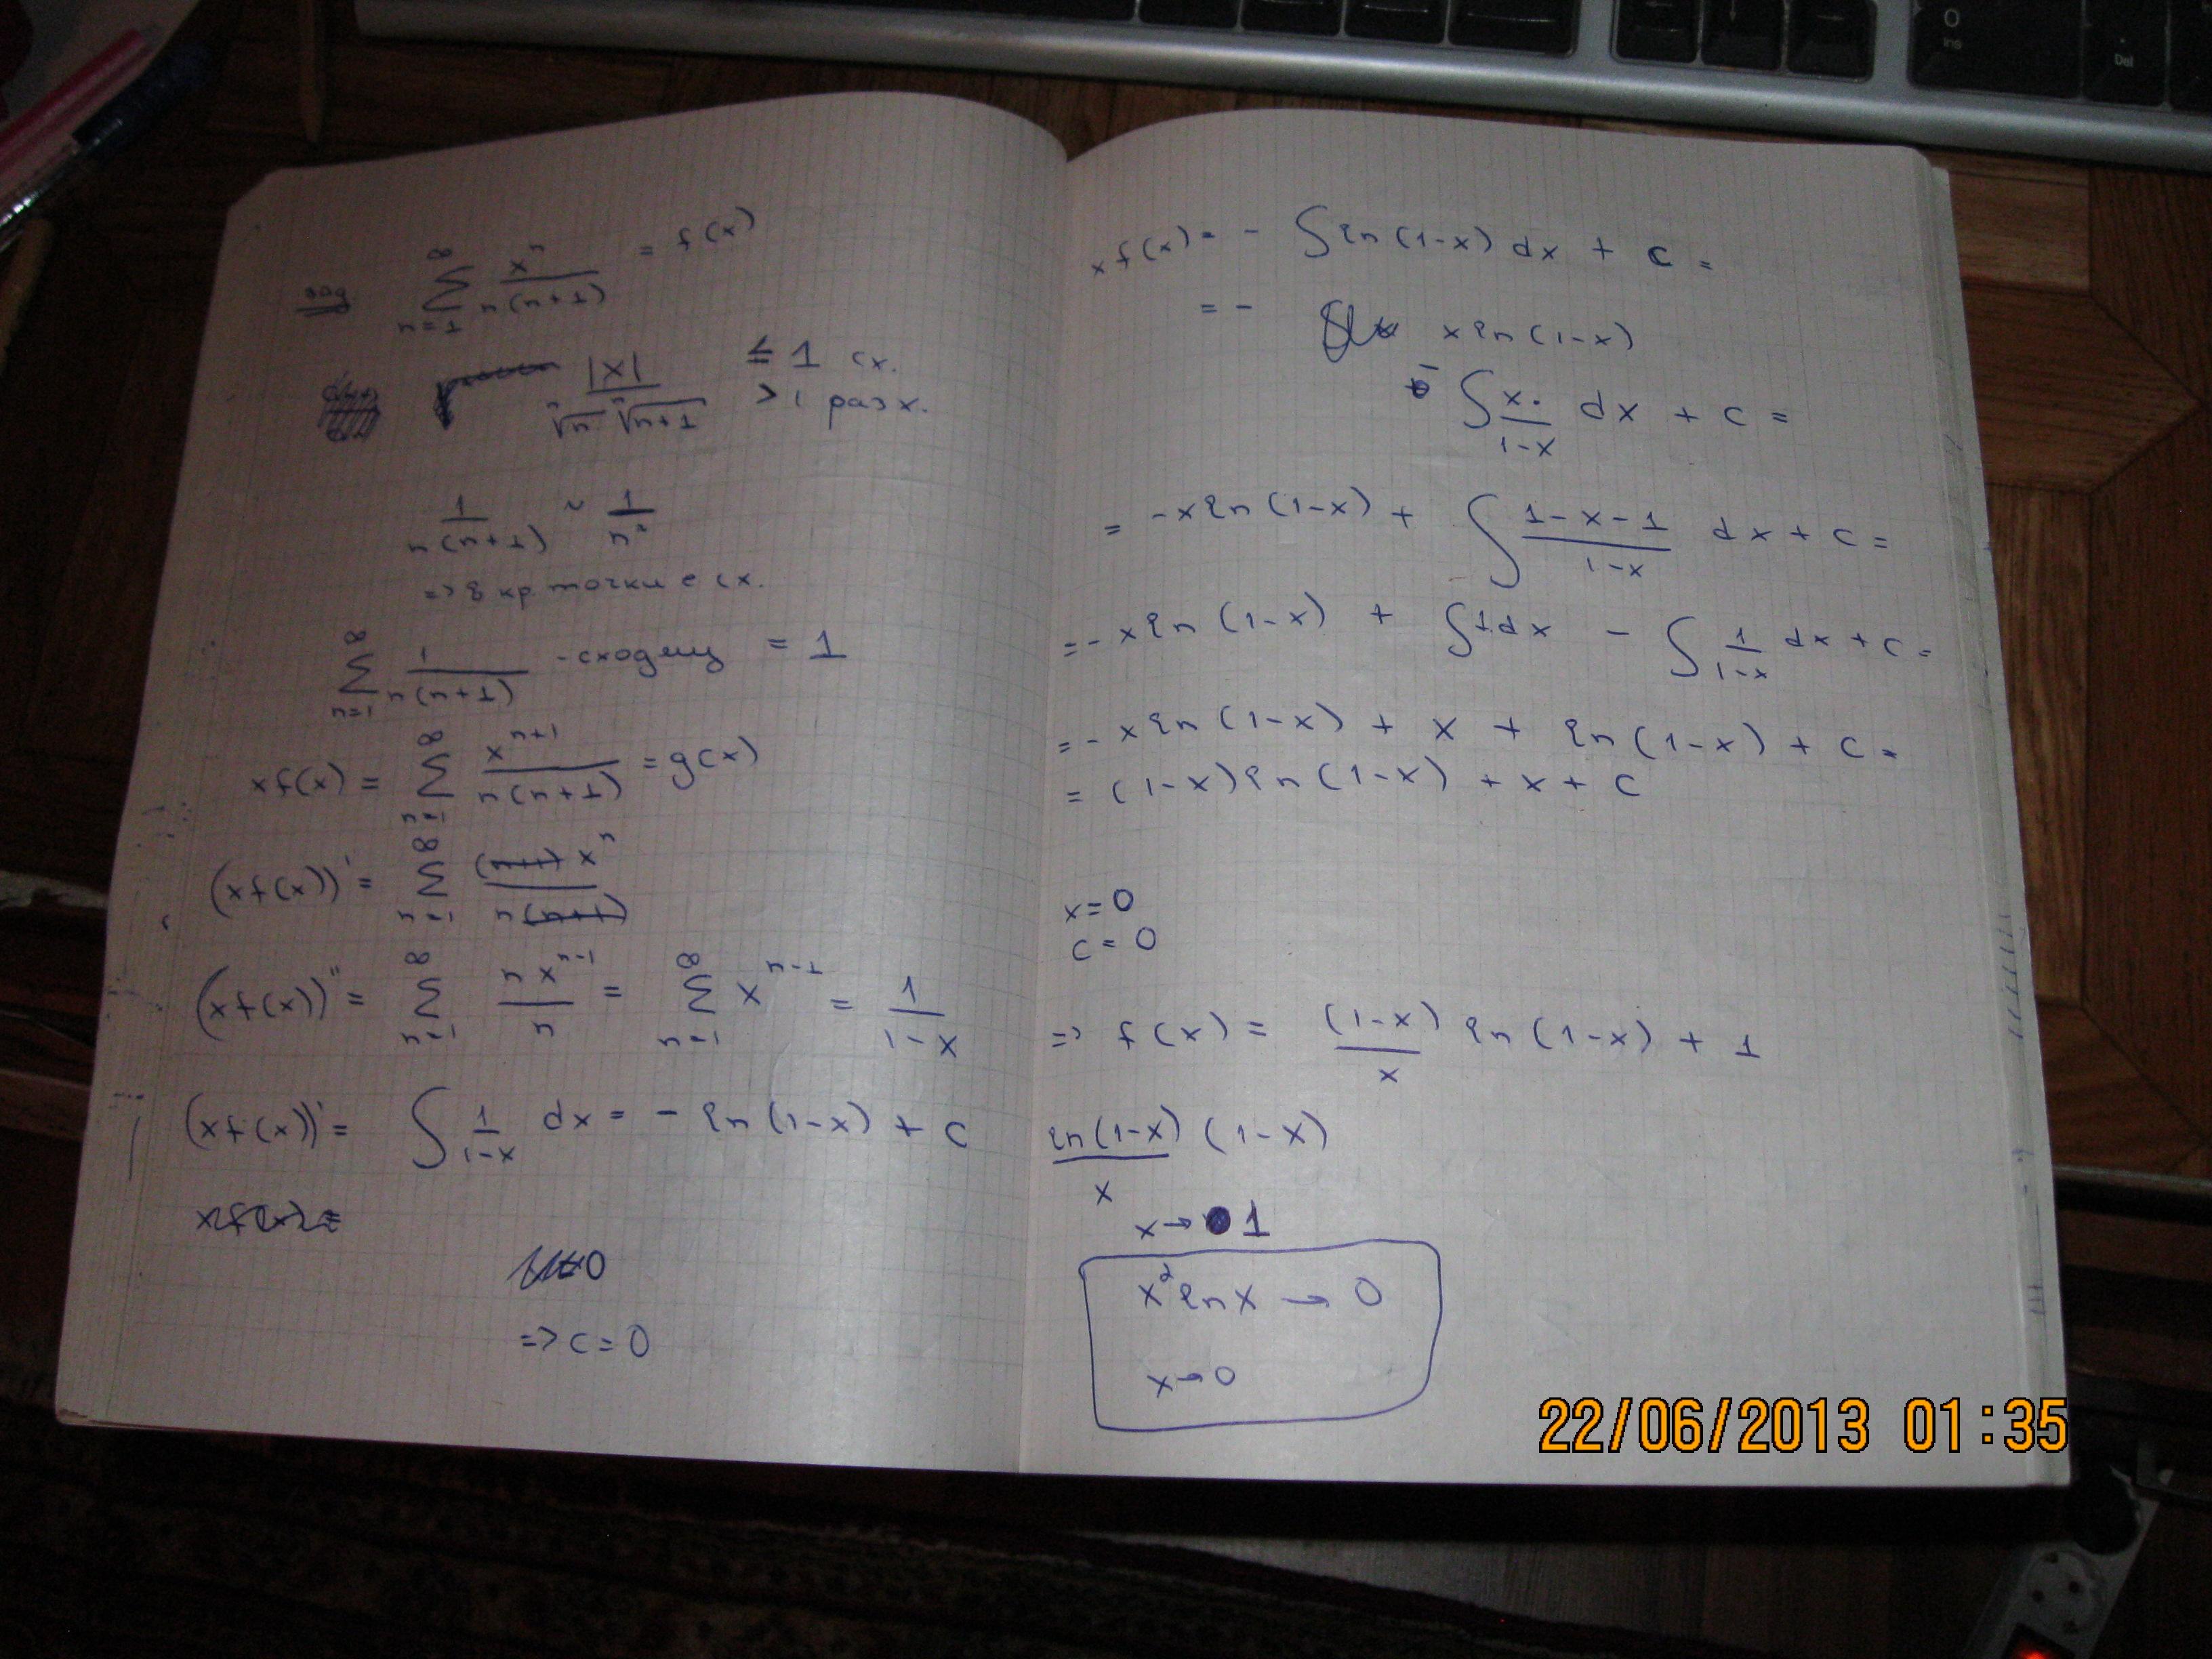 зад ∑_{n=1}^{∞} x^n / n(n+1) = f(x)
|x| / ⁿ√n ⁿ√(n+1) ≤ 1 сх.
> 1 разх.
1 / n(n+1) ~ 1 / n²
=> в кр. точки е сх.
∑_{n=1}^{∞} 1 / n(n+1) - сходящ = 1
x f(x) = ∑_{n=1}^{∞} x^{n+1} / n(n+1) = g(x)
(x f(x))' = ∑_{n=1}^{∞} (n+1) x^n / n(n+1)
(x f(x))'' = ∑_{n=1}^{∞} n x^{n-1} / n = ∑_{n=1}^{∞} x^{n-1} = 1 / 1-x
(x f(x))' = ∫ 1 / 1-x dx = - ln(1-x) + c
x f(x) =
=> c = 0
x f(x) = - ∫ ln(1-x) dx + c =
= - x ln(1-x)
- ∫ x / 1-x dx + c =
= -x ln(1-x) + ∫ 1-x-1 / 1-x dx + c =
= - x ln(1-x) + ∫ 1 dx - ∫ 1 / 1-x dx + c =
= - x ln(1-x) + x + ln(1-x) + c =
= (1-x) ln(1-x) + x + c
x = 0
c = 0
=> f(x) = (1-x) / x ln(1-x) + 1
ln(1-x) / x (1-x)
x → 1
x² ln x → 0
x → 0
22/06/2013 01:35
0
Ins
.
Del